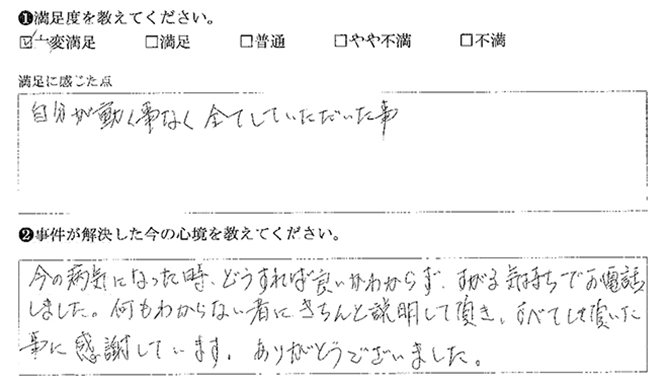 ❶満足度を教えてください。
☑大変満足 □満足 □普通 □やや不満 □不満
満足に感じた点
自分が動く事なく全てしていただいた事
❷事件が解決した今の心境を教えてください。
今の病気になった時、どうすれば良いかわからず、すがる気持ちでお電話
しました。何もわからない者にきちんと説明して頂き、すべてして頂いた
事に感謝しています。ありがとうございました。